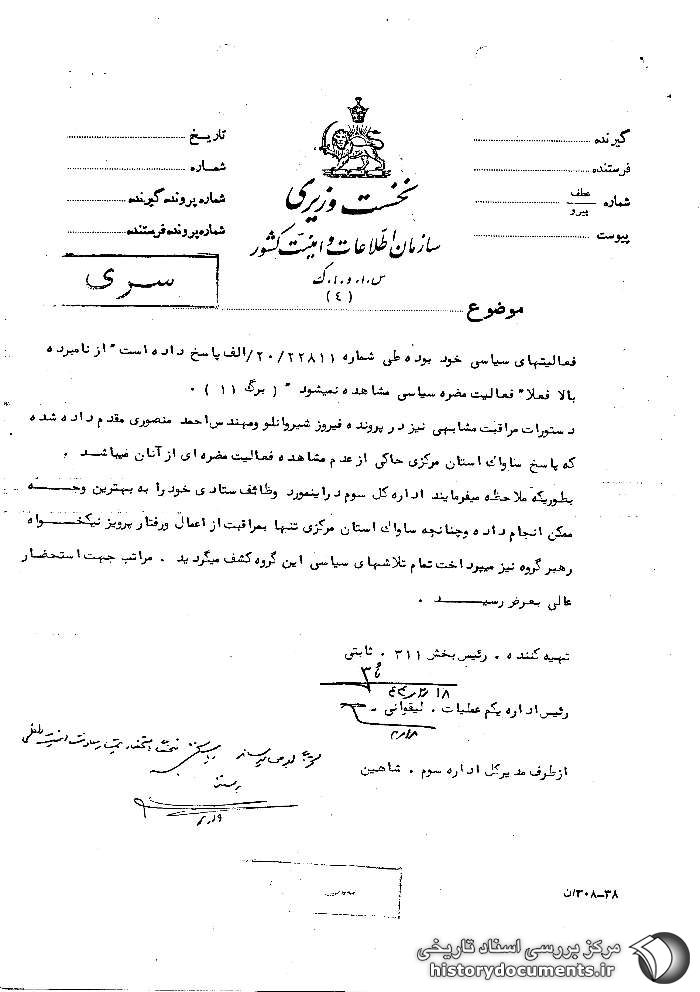 گیرنده
فرستنده
شماره عطف
پیرو
پیوست
نخست وزیری
سازمان اطلاعات و امنیت کشور
س.ا.و.ا.ک
(٤)
تاریخ
شماره
شماره پرونده گیرنده
شماره پرونده فرستنده
سری
موضوع
فعالیتهای سیاسی خود بوده طی شماره ۲۰/۲۲۸۱۱/الف پاسخ داده است " از نامبرده
بالا فعلا" فعالیت مضره سیاسی مشاهده نمیشود " ( برگ ۱۱ ) .
دستورات مراقبت مشابهی نیز در پرونده فیروز شیروانلو ومهندس احمد منصوری مقدم داده شده
که پاسخ ساواک استان مرکزی حاکی از عدم مشاهده فعالیت مضره ای از آنان میباشد .
بطوریکه ملاحظه میفرمایند اداره کل سوم دراینمورد وظائف ستادی خود را به بهترین وجـــه
ممکن انجام داده وچنانچه ساواک استان مرکزی تنها بمراقبت از اعمال ورفتار پرویز نیکخـــواه
رهبر گروه نیز میپرداخت تمام تلاشهای سیاسی این گروه کشف میگردید . مراتب جهت استحضار
عالی بعرض رسیـــــد .
تهیه کننده . رئیس بخش ۳۱۱ . ثابتی
رئیس اداره یکم عملیات . لیقوانی .
ازطرف مدیرکل اداره سوم . شاهین
۳۰۸-۳۸/ن
مرکز بررسی اسناد تاریخی
historydocuments.ir